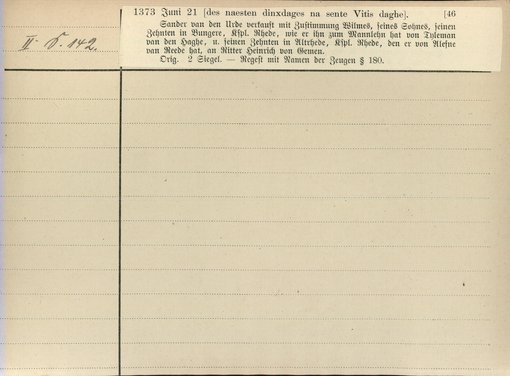 1373 Juni 21 [des naesten dinxdages na sente Vitis daghe]. [46
Sander van den Urde verkauft mit Zustimmung Wilmes, seines Sohnes, seinen
Zehnten in Bungere, Kspl. Rhede, wie er ihn zum Mannlehn hat von Tyleman
van den Haghe, u. seinen Zehnten in Altrhede, Kspl. Rhede, den er von Alefne
van Rede hat, an Ritter Heinrich von Gemen.
Orig. 2 Siegel. — Regest mit Namen der Zeugen § 180.
II. S. 142.